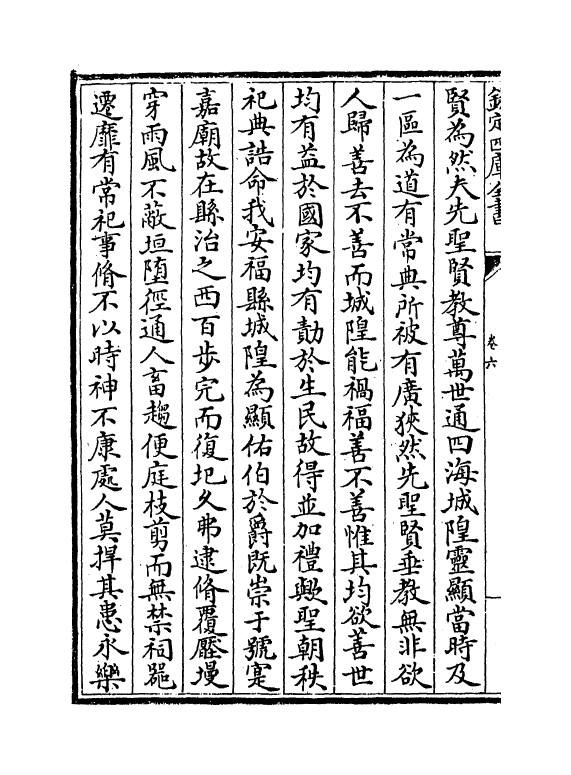 欽定四庫全書
卷六
賢為然夫先聖賢教尊萬世通四海城隍靈顯當時及
一區為道有常典所被有廣狹然先聖賢垂教無非欲
人歸善去不善而城隍能禍福善不善惟其均欲善世
均有益於國家均有勣於生民故得並加禮歟聖朝秩
祀典誥命我安福縣城隍為顯佑伯於爵既崇于號寔
嘉廟故在縣治之西百步完而復圯久弗逮脩覆壓墁
穿雨風不蔽垣墮徑通人畜趨便庭枝剪而無禁祠器
遷靡有常祀事脩不以時神不康處人莫捍其患永樂